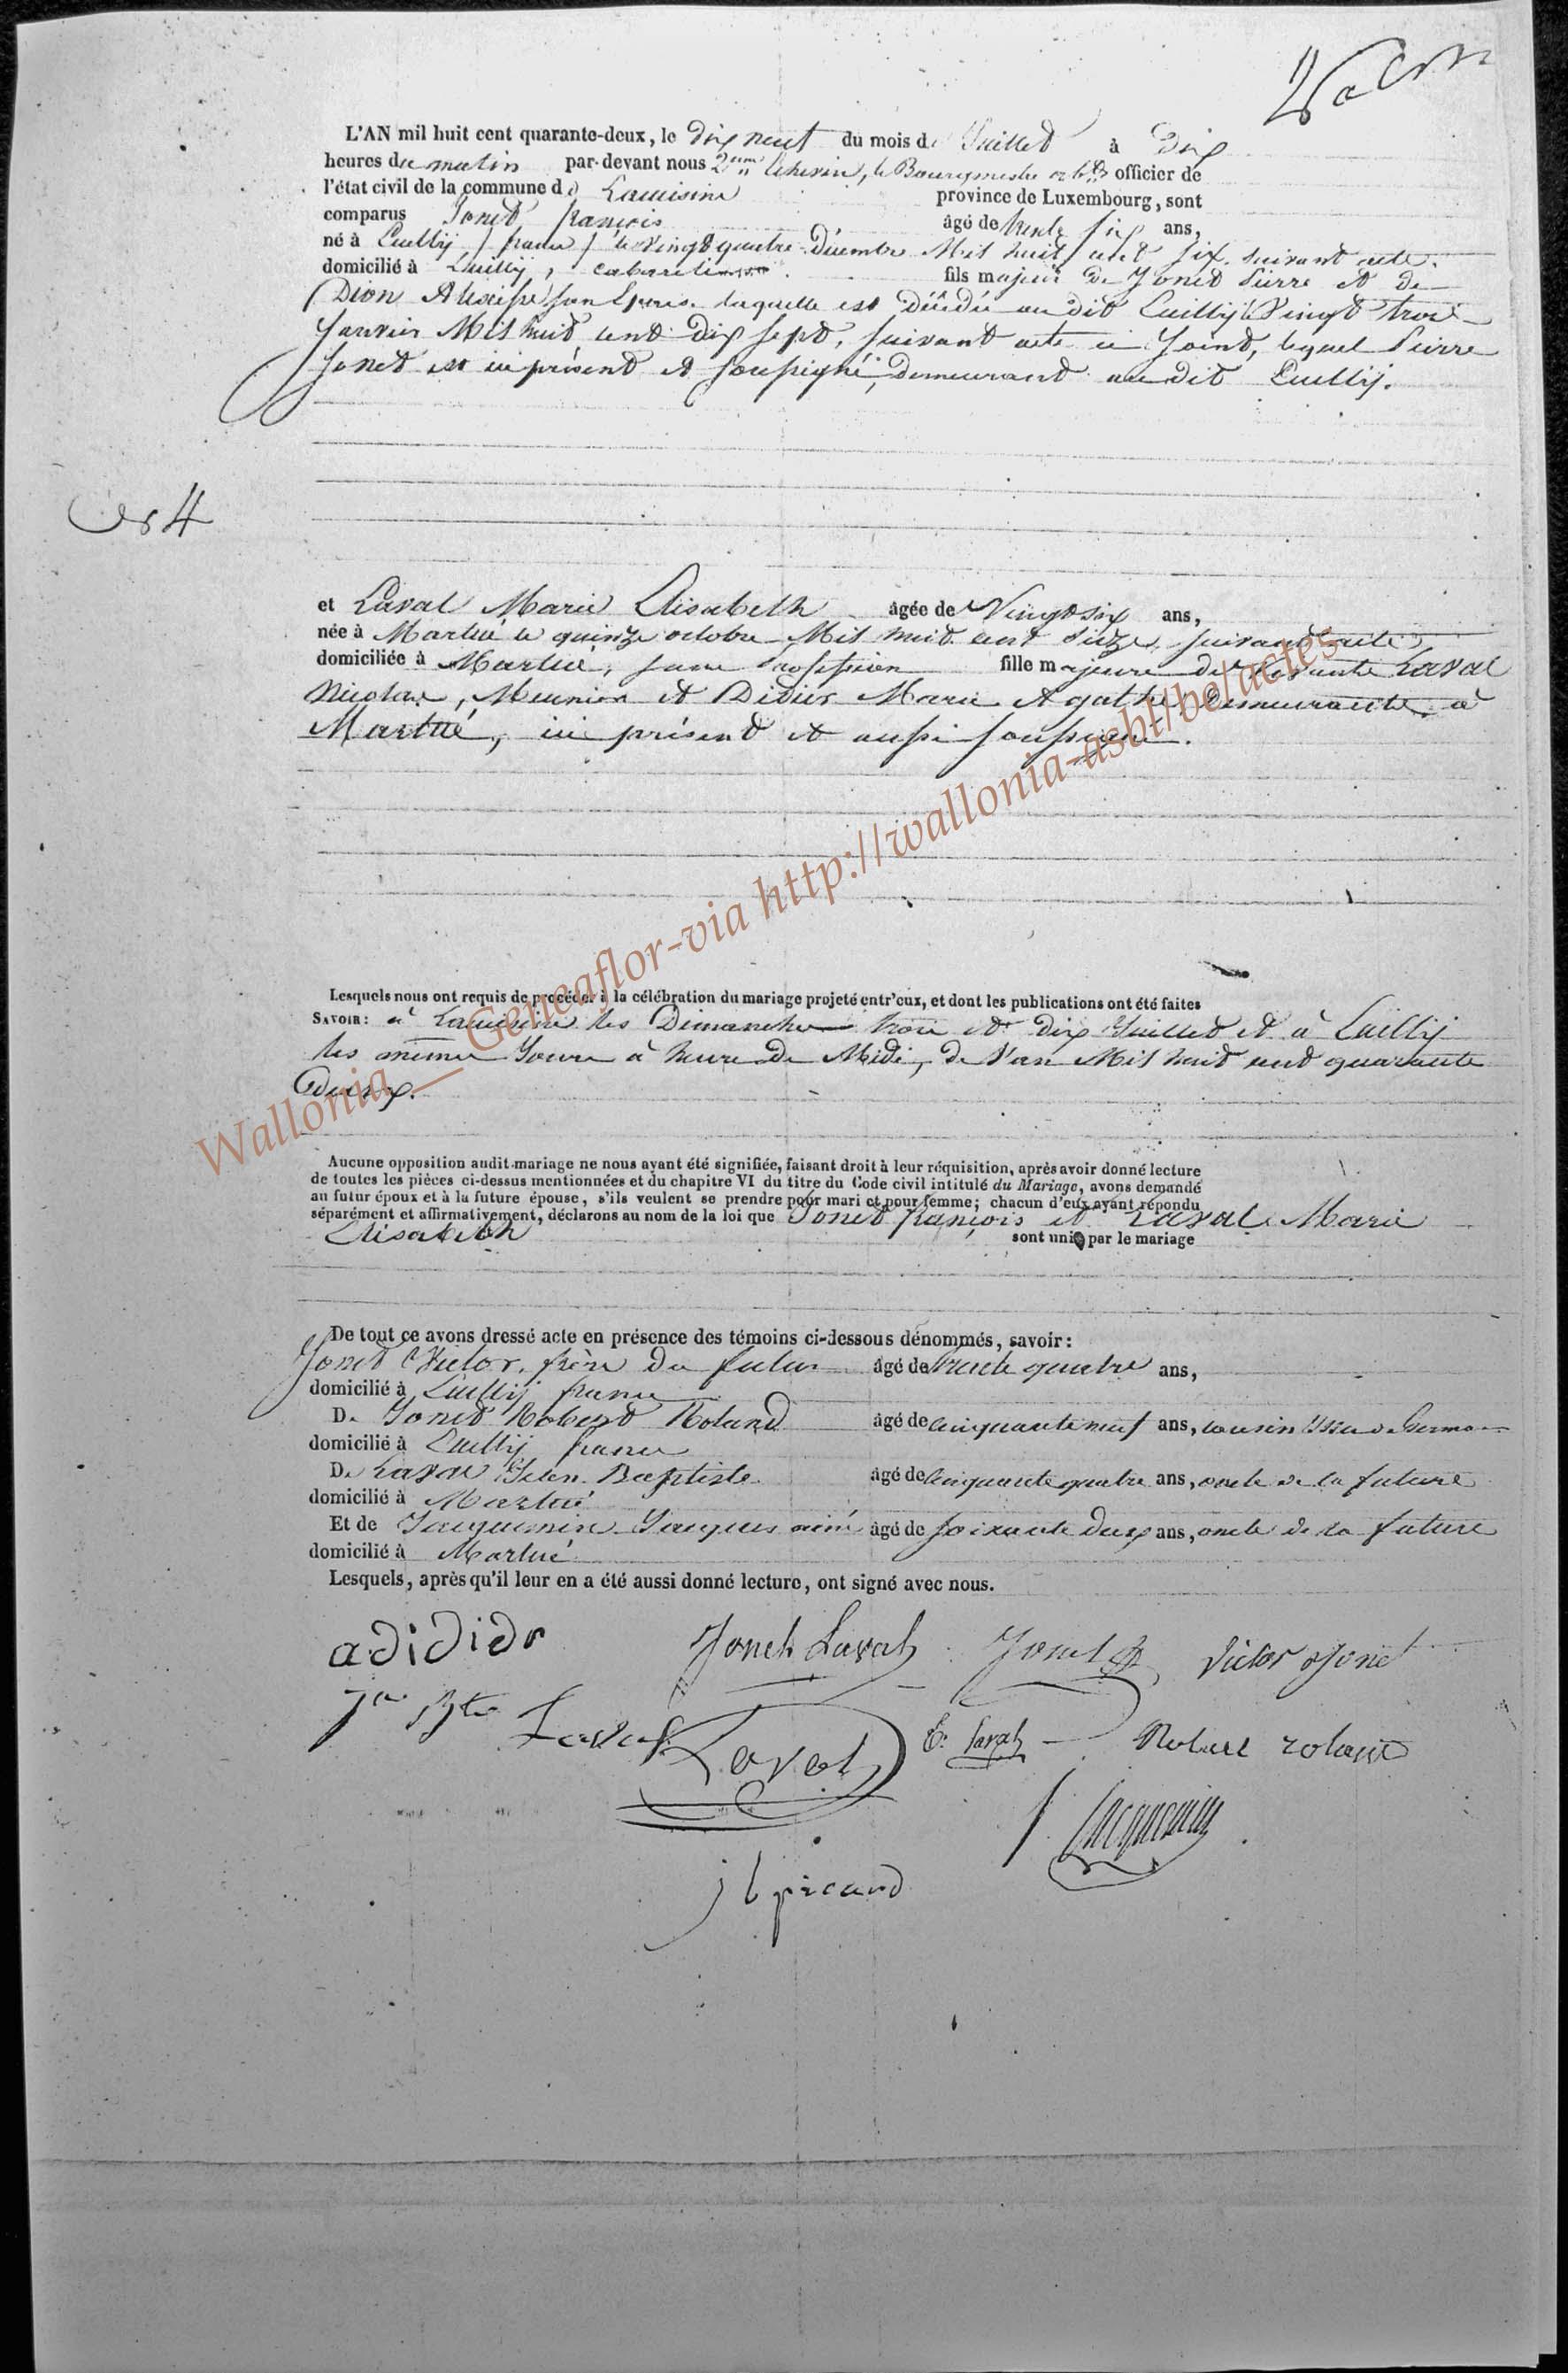 L'AN mil huit cent quarante-deux, le dix neuf du mois de Juillet à Dix
heures du matin par-devant nous 2eme Echevin, le Bourgmestre officier de
l'état civil de la commune de Lacuisine province de Luxembourg, sont
comparus Jonet françois âgé de trente six ans,
né à Cuilly (france) le vingt quatre Décembre Mil huit cent six, suivant acte,
domicilié à Cuilly, cabaretier fils majeur de Jonet Pierre et de
Dion laquelle est décédée au dit Cuilly Vingt trois
Janvier Mil huit cent dix sept, suivant acte ci Joint, lequel Pierre
Jonet est ici présent et soussigné, demeurant au dit Cuilly.
No 4
et Laval Marie Elisabeth âgée de Vingt six ans,
née à Martué le quinze octobre Mil huit cent Seize, suivant acte,
domiciliée à Martué, sans profession fille majeure de Laval
Nicolas, Meunier et Didier Marie Agathe demeurante à
Martué, ici présent et aussi soussigné.
Lesquels nous ont requis de procéder à la célébration du mariage projeté entr'eux, et dont les publications ont été faites
SAVOIR: à Lacuisine les Dimanches trois et dix Juillet et à Cuilly
les même Jours à heure de Midi, de l'an Mil huit cent quarante
Deux.
Aucune opposition audit mariage ne nous ayant été signifiée, faisant droit à leur réquisition, après avoir donné lecture
de toutes les pièces ci-dessus mentionnées et du chapitre VI du titre du Code civil intitulé du Mariage, avons demandé
au futur époux et à la future épouse, s'ils veulent se prendre pour mari et pour femme; chacun d'eux ayant répondu
séparément et affirmativement, déclarons au nom de la loi que Jonet françois et Laval Marie
Elisabeth sont unis par le mariage
De tout ce avons dressé acte en présence des témoins ci-dessous dénommés, savoir:
Jonet Victor, frère du futur âgé de trente quatre ans,
domicilié à Cuilly france
De Jonet Robert Roland âgé de cinquante neuf ans, cousin Issu de Germain
domicilié à Cuilly france
De Laval Jean Baptiste âgé de cinquante quatre ans, oncle de la future
domicilié à Martué
Et de Jacquemin Jacques ainé âgé de soixante deux ans, oncle de la future
domicilié à Martué
Lesquels, après qu'il leur en a été aussi donné lecture, ont signé avec nous.
a didier Jonet Laval Jonet Victor Jonet
Jn Bte Laval Laval E. Laval Robert roland
J. Jacquemin
j b picard
Wallonia _ Geneaflor-via http://wallonia-asbl/be/actes